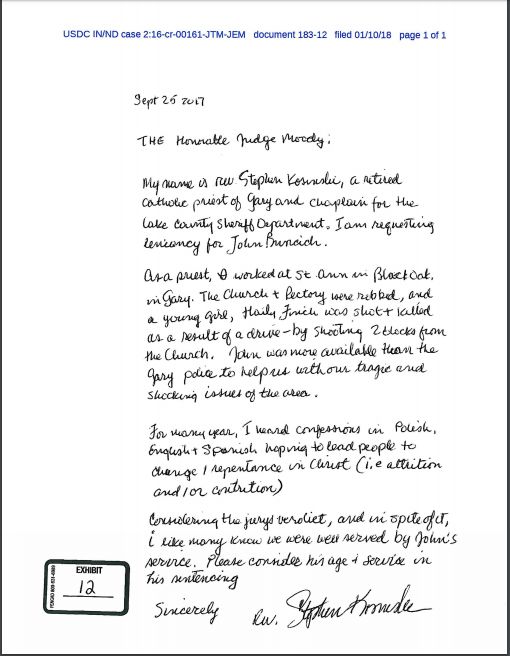 USDC IN/ND case 2:16-cr-00161-JTM-JEM document 183-12 filed 01/10/18 page 1 of 1
Sept 25 2017
THE Honorable Judge Moody:
My name is Rev Stephen Kosinski, a retired
catholic priest of Gary and chaplain for the
Lake County Sheriff Department. I am requesting
leniency for John Buncich.
As a priest, I worked at St Ann in Black Oak,
in Gary. The Church + Rectory were robbed, and
a young girl, Haily, was shot + killed
as a result of a drive-by shooting 2 blocks from
the Church. John was more available than the
Gary police to help us with our tragic and
shocking issues of the area.
For many year, I heard confessions in Polish,
English + Spanish hoping to lead people to
change / repentance in Christ (i.e attrition
and/or contrition)
Considering the jurys verdict, and in spite of it,
i like many know we were well served by John's
service. Please consider his age + service in
his sentencing
Sincerely
Rev. Stephen
EXHIBIT
12